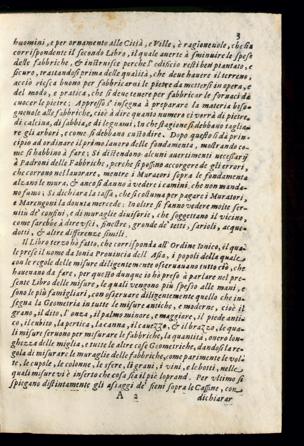 3
huomini, e per ornamento alle Città, e Ville, è ragioneuole, che sia
corrispondente il secondo Libro, il quale auerte à sminuire le spese
delle fabbriche, & instruisce perche l'edificio resti ben piantato, e
sicuro, trattandosi prima delle qualità, che deue hauere il terreno,
acciò riesca buono per fabbricarui le pietre da mettersi in opera, e
del modo, e pratica, che si deue tenere per fabbricar le fornaci da
cuocer le pietre; Appresso s'insegna à preparare la materia biso-
gneuole alle fabbriche, cioè à dire quanto numero ci vorrà di pietre,
di calcina, di sabbia, e di legnami. In che stagione si debbano taglia-
re gli arbori, come si debbano custodire. Dopo questo si dà prin-
cipio ad ordinare il primo lauoro delle fundamenta, mostrando co-
me si habbino à fare; Si distendono alcuni auertimenti necessarij
à Padroni delle Fabbriche, perche si possino accorgere de gli errori,
che corrono nel lauorare, mentre i Muratori sopra le fondamenta
alzano le mura, & anco si danno à vedere i camini, che non manda-
no fumo. Si dichiara la tassa, che si costuma per pagar i Muratori,
e Marengoni la douuta mercede; Inoltre si fanno vedere molte fir-
mità de' confini, e di muraglie diuisorie, che soggettano il vicino,
come sarebbe à dire vsci, finestre, gronde de' tetti, sarioli, acque-
dotti, & altre differenze simili.
Il Libro terzo hò fatto, che corrisponda all'Ordine Ionico, il qua-
le prese il nome da Ionia Prouincia dell'Asia, i popoli della quale
con le regole delle misure diligentemente osseruauano tutto ciò, che
haueuano da fare, per questo dunque io hò preso à parlare nel pre-
sente Libro delle misure, le quali vengono più spesso alle mani, e
sono le più famigliari, con osseruare diligentemente quello che in-
segna la Geometria in tutte le misure antiche, e moderne, cioè il
grano, il dito, l'onza, il palmo minore, e maggiore, il piede anti-
co, il cubito, la pertica, la canna, il cauezzo, & il brazzo, le qua-
li misure seruono per misurare le fabbriche, la quantità, ouero lon-
ghezza delle miglia, e tutte le altre cose Geometriche, dandosi la re-
gola di misurare le muraglie delle fabbriche, come parimente le vol-
te, le cupole, le colonne, le sfere, li grani, i vini, e le botti, nelle
quali misure vi è inserto che cosa sia il piè liprand. Per vltimo si
spiegano distintamente gli assaggi de' fieni sopra le Cassine, con
A 2
dichiarar